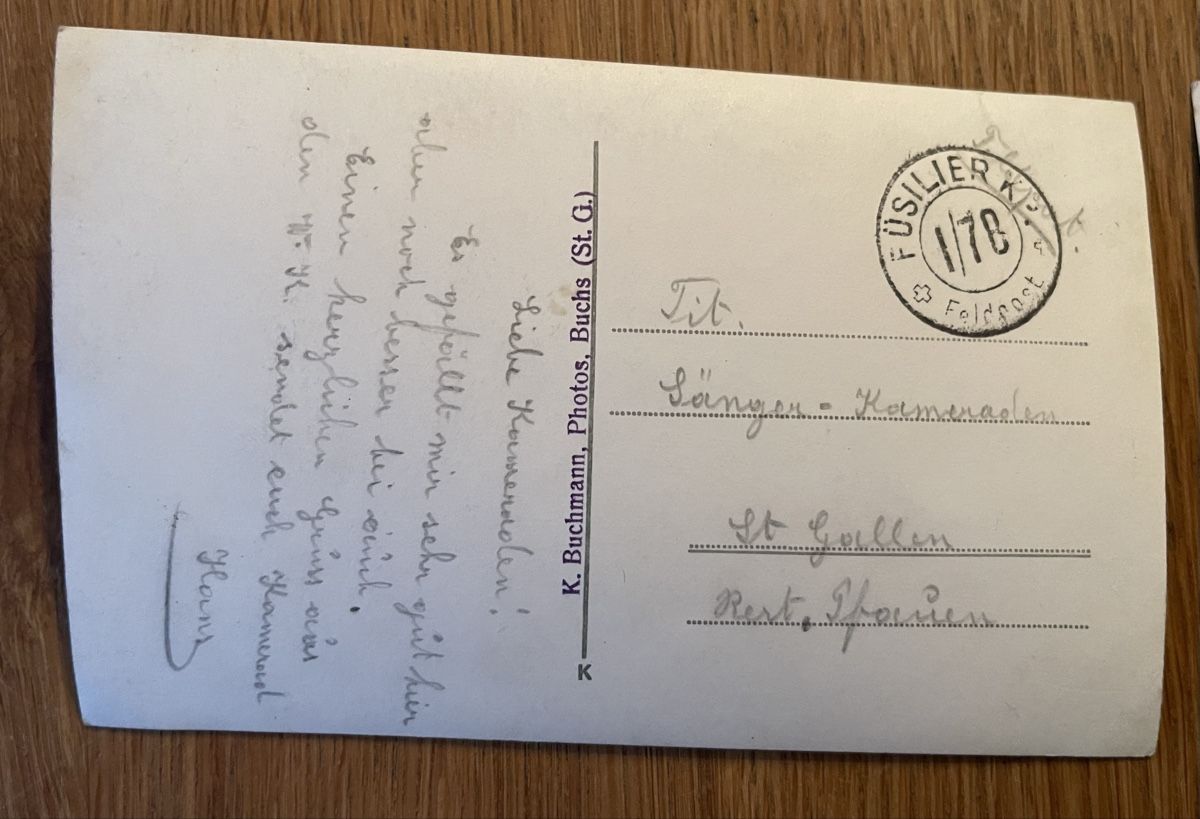 Liebe Kameraden!
Es gefällt mir sehr gut hier
aber noch besser bei euch.
Einen herzlichen Gruss aus
den W.K. sendet euch Kamerad
Hans
K. Buchmann, Photos, Buchs (St. G.)
K
FÜSILIER KP.
I/78
Feldpost
Tit.
Sänger-Kameraden
St Gallen
Rest. Pfauen